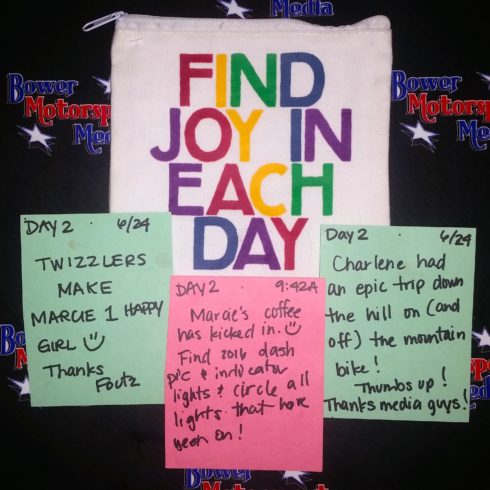 Bower
Media
Motorsports
Media
Bower
Motorsp
Media
FIND
JOY IN
EACH
DAY
DAY 2 6/24
TWIZZLERS
MAKE
MARCIE 1 HAPPY
GIRL
Thanks
Foutz
DAY 2 9:42A
Marcie's coffee
has kicked in.
Find 2016 dash
pic & indicator
lights & circle all
lights that have
been on!
Day 2 6/24
Charlene had
an epic trip down
the hill on (and
off) the mountain
bike!
Thumbs up!
Thanks media guys!
Bower
Bower
Motorsports
Bower